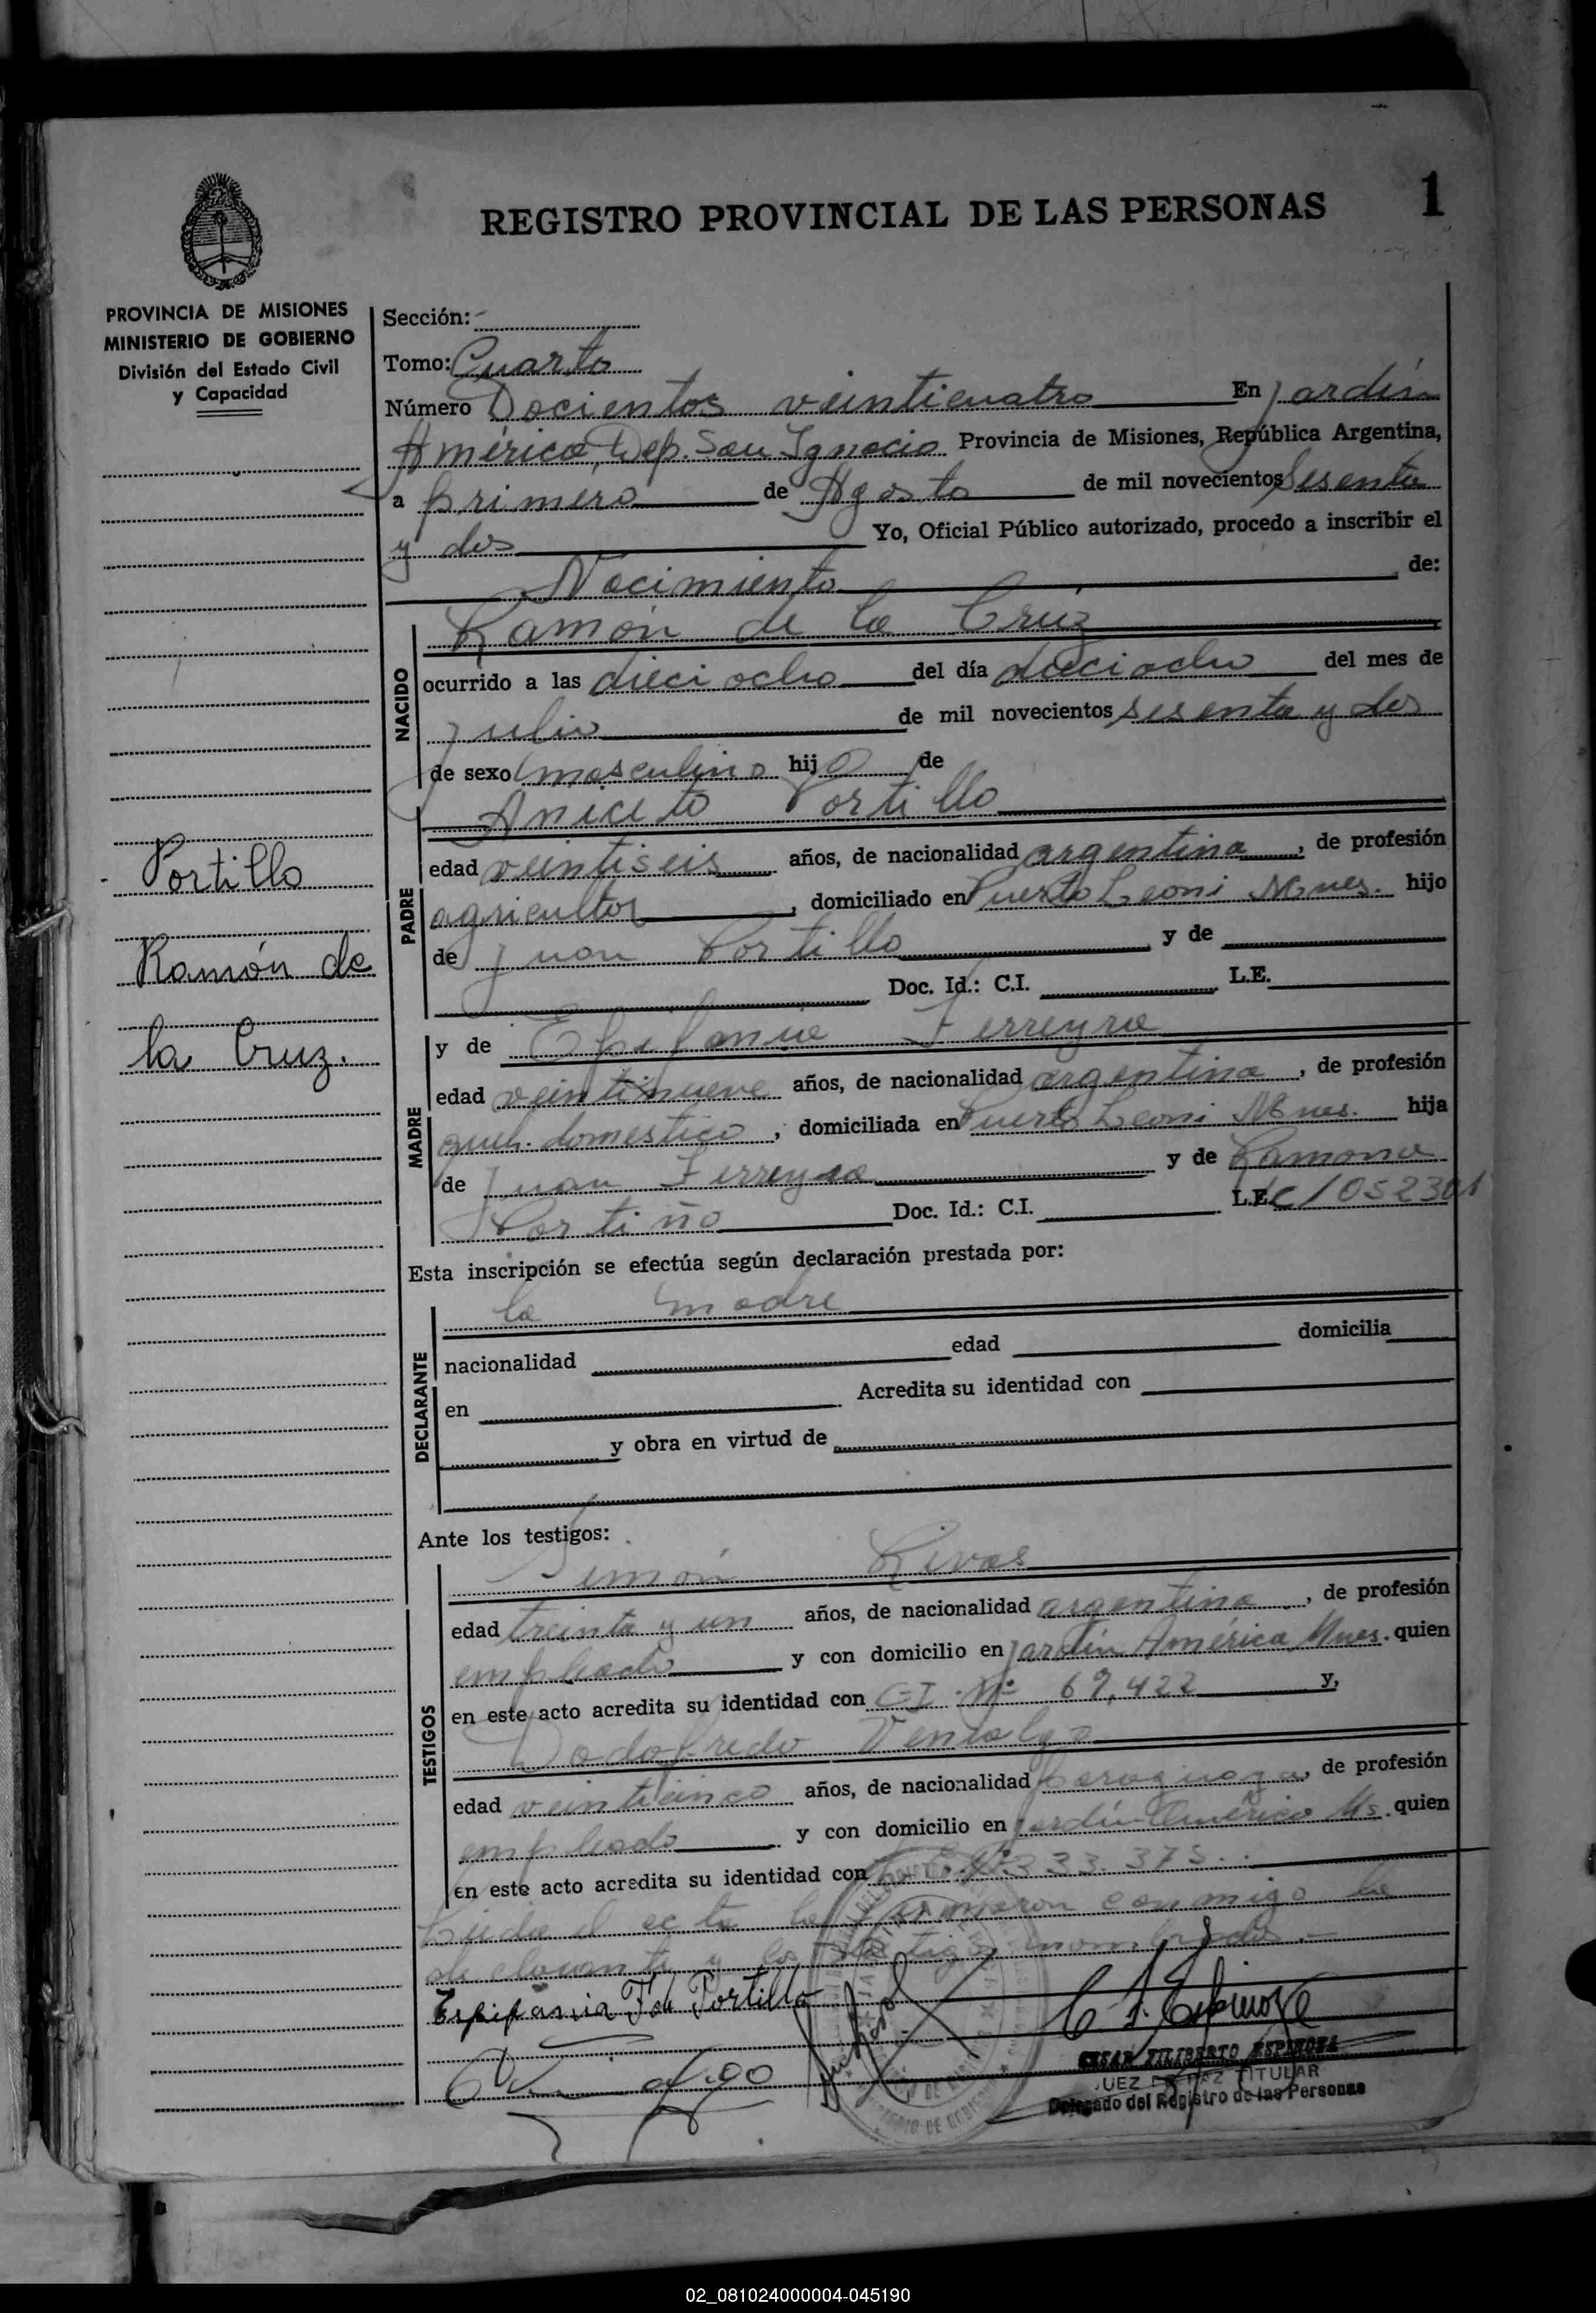 REGISTRO PROVINCIAL DE LAS PERSONAS 1
PROVINCIA DE MISIONES
MINISTERIO DE GOBIERNO
División del Estado Civil
y Capacidad
Sección: -
Tomo: Cuarto
Número Docientos veinticuatro En Jardín
América, Dep. San Ignacio Provincia de Misiones, República Argentina,
a primero de Agosto de mil novecientos sesenta
y dos Yo, Oficial Público autorizado, procedo a inscribir el
Nacimiento de:
NACIDO
Ramón de la Cruz
ocurrido a las dieciocho del día dieciocho del mes de
Julio de mil novecientos sesenta y dos
de sexo masculino hijo de
PADRE
Aniceto Portillo
edad veintiseis años, de nacionalidad argentina, de profesión
agricultor, domiciliado en Puerto Leoni Mnes. hijo
de Juan Portillo y de
Doc. Id.: C.I. L.E.
Portillo
Ramón de
la Cruz.
MADRE
y de Epifania Ferreyra
edad veintinueve años, de nacionalidad argentina, de profesión
queh. domestico, domiciliada en Puerto Leoni Mnes. hija
de Juan Ferreyra y de Ramona
Portiño Doc. Id.: C.I. L.E. 1052301
Esta inscripción se efectúa según declaración prestada por:
DECLARANTE
la madre
nacionalidad edad domicilia
en Acredita su identidad con
y obra en virtud de
Ante los testigos:
TESTIGOS
Simón Rivas
edad treinta y un años, de nacionalidad argentina, de profesión
empleado y con domicilio en Jardín América, Mnes. quien
en este acto acredita su identidad con C.I. Nº 69,422 y,
edad veinticinco años, de nacionalidad paraguaya, de profesión
empleado y con domicilio en Jardín América Ms. quien
en este acto acredita su identidad con Nº 333.375.
Leida el acta la firmaron conmigo la
declarante y los testigos nombrados.-
Epifania F de Portillo
C. F. Espinoza
CESAR FILIBERTO ESPINOZA
JUEZ DE PAZ TITULAR
Delegado del Registro de las Personas
02_081024000004-045190